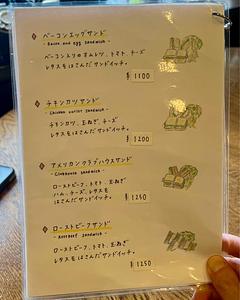 ベーコンエッグサンド
- Bacon and egg sandwich -
ベーコン入りのオムレツ、トマト、チーズ
レタスをはさんだサンドイッチ。
¥1100
チキンカツサンド
- Chicken cutlet sandwich -
チキンカツ、玉ねぎ、チーズ
レタスをはさんだサンドイッチ。
¥1200
アメリカンクラブハウスサンド
- Clubhouse sandwich -
ローストビーフ、トマト、玉ねぎ
ハム、チーズ、レタスを
はさんだサンドイッチ。
¥1250
ローストビーフサンド
- Roastbeef sandwich -
ローストビーフ、トマト、玉ねぎ
レタスをはさんだサンドイッチ。
¥1250